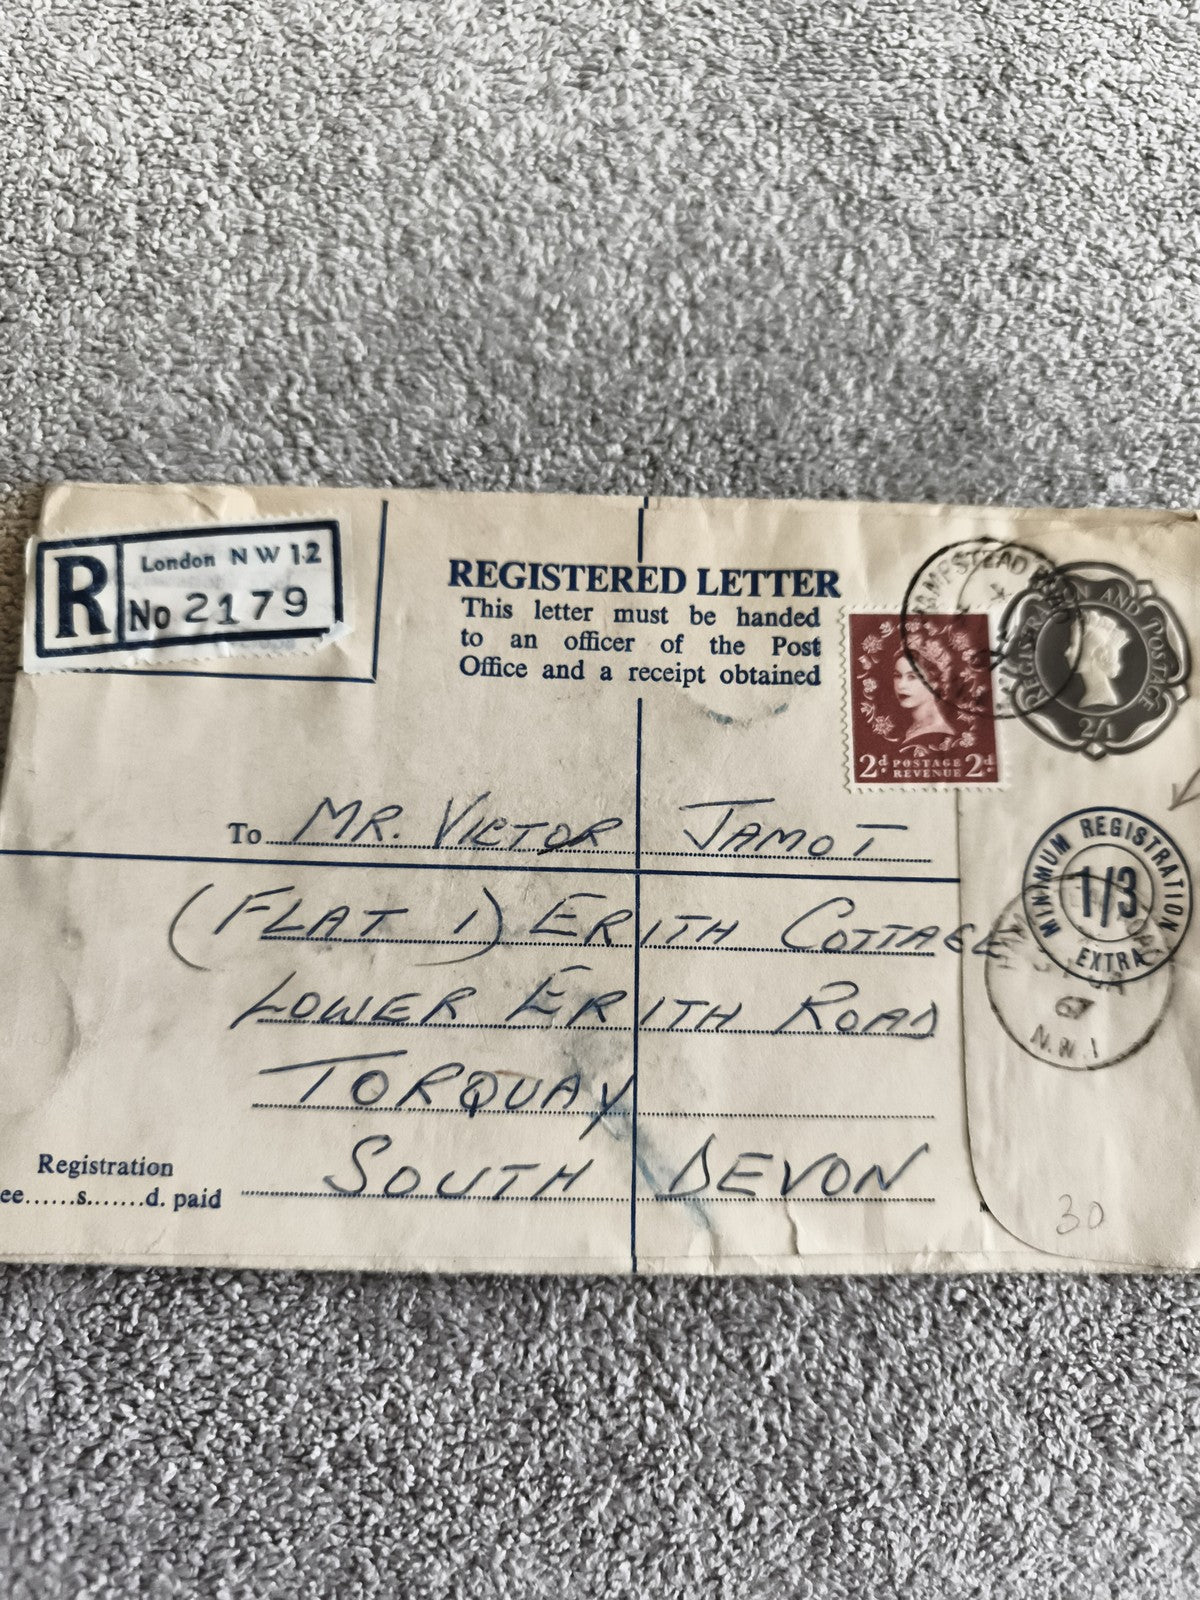 R London N W 12
No 2179
REGISTERED LETTER
This letter must be handed
to an officer of the Post
Office and a receipt obtained
HAMPSTEAD
REGISTRATION AND POSTAGE
2/1
2d POSTAGE REVENUE 2d
MINIMUM REGISTRATION
1/3
EXTRA
67
N.W.1
To MR. VICTOR JAMOT
(FLAT 1) ERITH COTTAGE
LOWER ERITH ROAD
TORQUAY
SOUTH DEVON
Registration
ee......s.......d. paid
30